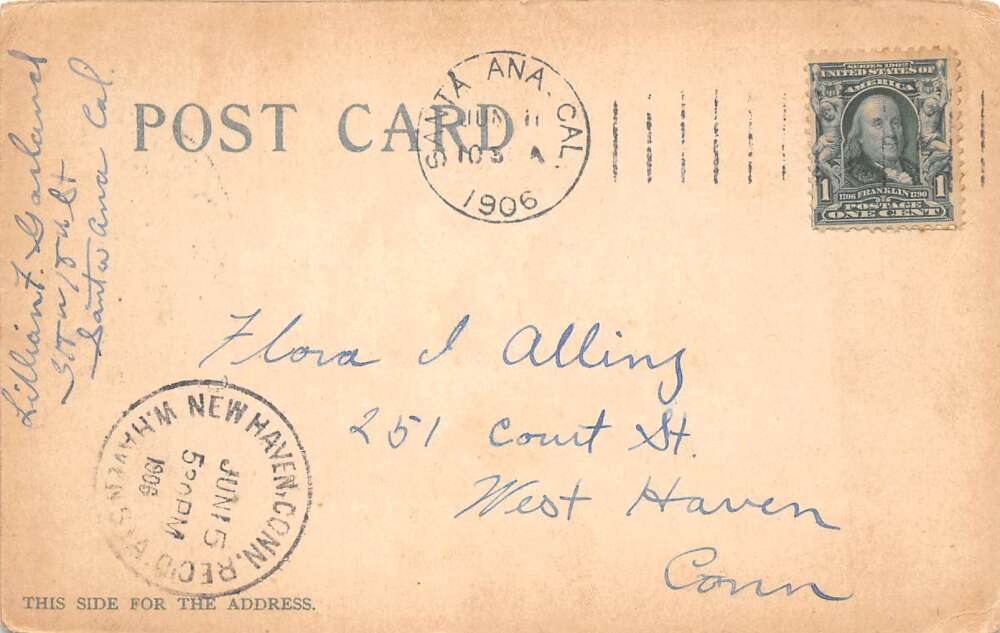 POST CARD
SANTA ANA. CAL.
JUN 11
1906
SERIES 1902
UNITED STATES OF
AMERICA
1 1706 FRANKLIN 1790 1
POSTAGE
ONE CENT
Santa Ana Cal.
Flora I Alling
251 Court St.
West Haven
Conn
NEW HAVEN. CONN. REC'D.
JUN 15
530 PM
1906
THIS SIDE FOR THE ADDRESS.